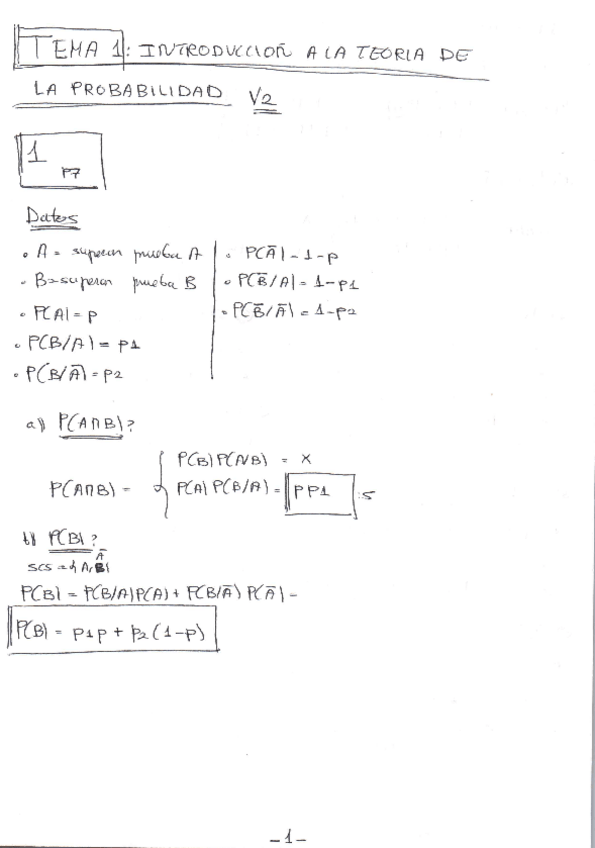 TEMA 1: INTRODUCCION A LA TEORIA DE
LA PROBABILIDAD V2
1
P7
Datos
• A = superan prueba A
• B = superan prueba B
• P(A) = p
• P(B/A) = p1
• P(B/Ā) = p2
• P(Ā) = 1-p
• P(B̄/A) = 1-p1
• P(B̄/Ā) = 1-p2
a) P(A∩B)?
P(B) P(A/B) = x
P(A∩B) = { P(A) P(B/A) = pp1
b) P(B)?
P(B) = P(B/A)P(A) + P(B/Ā) P(Ā) =
P(B) = p1p + p2(1-p)
-1-